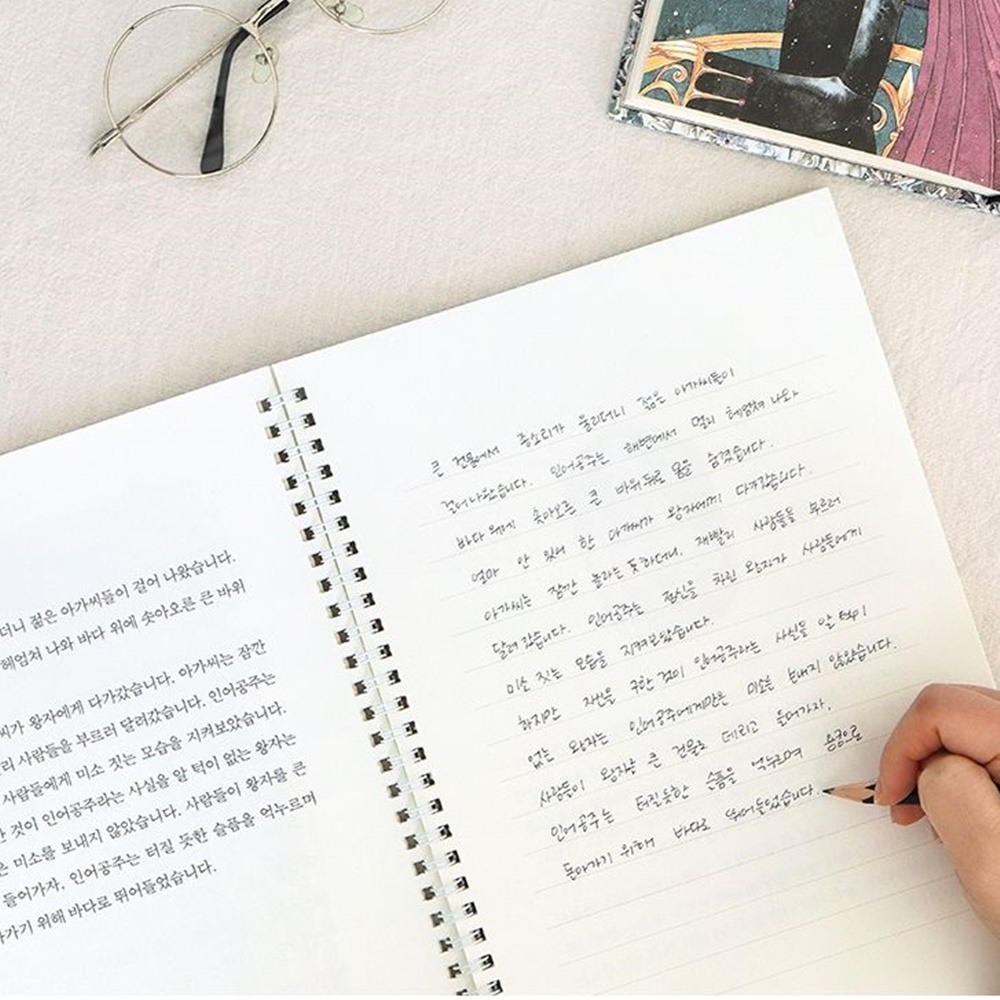 더니 젊은 아가씨들이 걸어 나왔습니다.
헤엄쳐 나와 바다 위에 솟아오른 큰 바위
씨가 왕자에게 다가갔습니다. 아가씨는 잠깐
리 사람들을 부르러 달려갔습니다. 인어공주는
사람들에게 미소 짓는 모습을 지켜보았습니다.
한 것이 인어공주라는 사실을 알 턱이 없는 왕자는
은 미소를 보내지 않았습니다. 사람들이 왕자를 큰
들어가자, 인어공주는 터질 듯한 슬픔을 억누르며
아가기 위해 바다로 뛰어들었습니다.
큰 건물에서 종소리가 울리더니 젊은 아가씨들이
걸어나왔습니다. 인어공주는 해변에서 멀리 헤엄쳐 나와
바다 위에 솟아오른 큰 바위 뒤로 몸을 숨겼습니다.
얼마 안 있어 한 아가씨가 왕자에게 다가갔습니다.
아가씨는 잠깐 놀라는 듯하더니, 재빨리 사람들을 부르러
달려갔습니다. 인어공주는 정신을 차린 왕자가 사람들에게
미소 짓는 모습을 지켜보았습니다.
하지만 자신을 구한 것이 인어공주라는 사실을 알 턱이
없는 왕자는 인어공주에게만은 미소를 보내지 않았습니다.
사람들이 왕자를 큰 건물로 데리고 들어가자,
인어공주는 터질듯한 슬픔을 억누르며 용궁으로
돌아가기 위해 바다로 뛰어들었습니다.